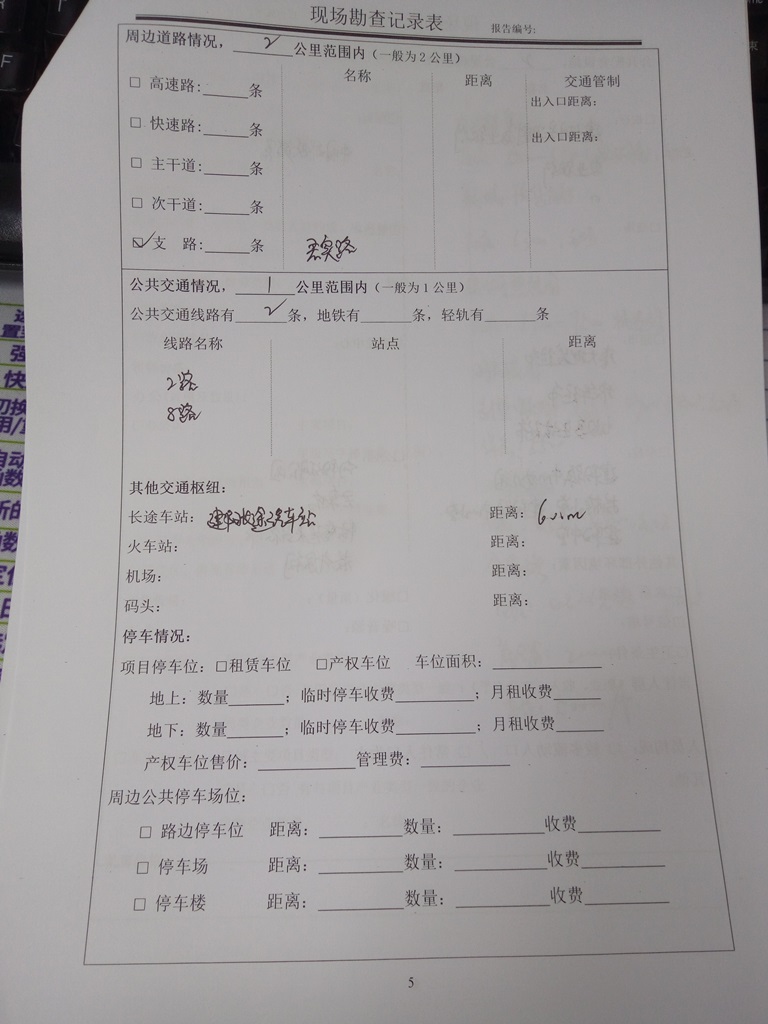 现场勘查记录表 报告编号:
周边道路情况，2公里范围内（一般为2公里）
名称 距离 交通管制
□ 高速路:______条 出入口距离:
□ 快速路:______条 出入口距离:
□ 主干道:______条
□ 次干道:______条
☑ 支 路:______条 路
公共交通情况，1公里范围内（一般为1公里）
公共交通线路有2条，地铁有______条，轻轨有______条
线路名称 站点 距离
2路
8路
其他交通枢纽：
长途车站：汽车站 距离：
火车站： 距离：
机场： 距离：
码头： 距离：
停车情况：
项目停车位：□租赁车位 □产权车位 车位面积：______
地上：数量______；临时停车收费______；月租收费______
地下：数量______；临时停车收费______；月租收费______
产权车位售价：______管理费：______
周边公共停车场位：
□ 路边停车位 距离：______数量：______收费______
□ 停车场 距离：______数量：______收费______
□ 停车楼 距离：______数量：______收费______
5